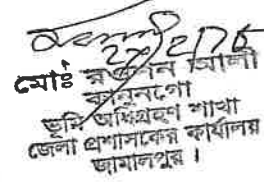 মোঃ রওশন আলী
কানুনগো
ভূমি অধিগ্রহণ শাখা
জেলা প্রশাসকের কার্যালয়
জামালপুর।